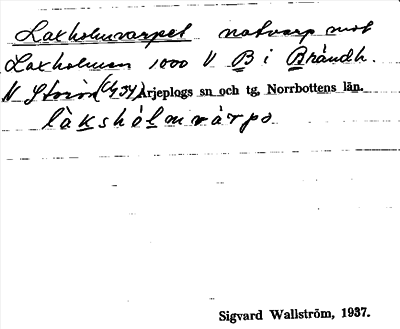 Laxholmvarpet notvarp mot
Laxholmen 1000 V B i Brändh.
N Storön (C 34) Arjeplogs sn och tg, Norrbottens län.
làksholmvàrpə
Sigvard Wallström, 1937.